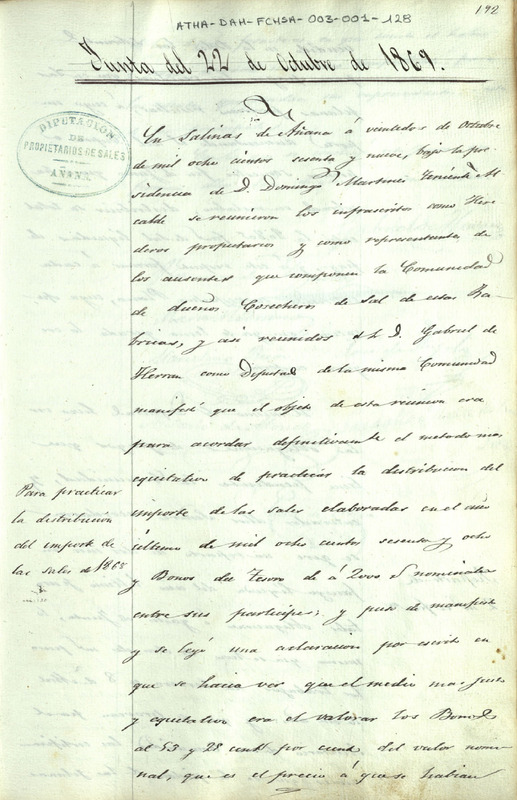 192
ATHA-DAH-FCHSA-003-001-128
Junta del 22 de Octubre de 1869.
DIPUTACION
DE
PROPIETARIOS DE SALES
AÑANA
En Salinas de Añana á veintidos de Octubre
de mil ocho cientos sesenta y nueve, bajo la pre
sidencia de D. Domingo Martinez Teniente Al
calde se reunieron los infrascritos como Here
deros propietarios y como representantes de
los ausentes que componen la Comunidad
de dueños Cosecheros de Sal de estas Fa
bricas, y asi reunidos el D. Gabriel de
Herran como Deputado de la misma Comunidad
manifestó que el objeto de esta reunion era
para acordar definitivamte el metodo mas
equitativo de practicar la distribucion del
importe de las sales elaboradas en el año
último de mil ocho cientos sesenta y ocho
y Bonos del Tesoro de á 2000 nominales
entre sus participes; y puso de manifiesto
y se leyó una aclaracion por escrito en
que se hacia ver que el medio mas justo
y equitativo era el valorar los Bonos
al 53 y 28 cent por ciento del valor nomi
nal, que es el precio á que se habian
Para practicar
la distribucion
del importe de
las sales de 1868